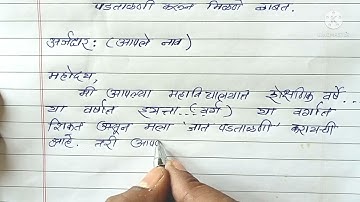 पडताळणी करून मिळणे बाबत.
अर्जदार: (आपले नाव)
महोदय,
मी आपल्या महाविद्यालयात शैक्षणिक वर्षे..
या वर्गात इयत्ता..(वर्ग) या वर्गात
शिकत असून मला 'जात पडताळणी' करायची
आहे. तरी आप